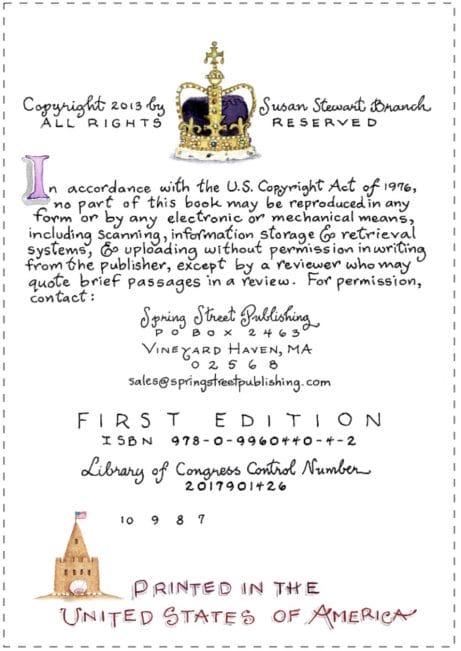 Copyright 2013 by Susan Stewart Branch
ALL RIGHTS RESERVED
In accordance with the U.S. Copyright Act of 1976,
no part of this book may be reproduced in any
form or by any electronic or mechanical means,
including scanning, information storage & retrieval
systems, & uploading without permission in writing
from the publisher, except by a reviewer who may
quote brief passages in a review. For permission,
contact:
Spring Street Publishing
P O BOX 2463
VINEYARD HAVEN, MA
02568
sales@springstreetpublishing.com
FIRST EDITION
ISBN 978-0-9960440-4-2
Library of Congress Control Number
2017901426
10 9 8 7
PRINTED IN THE
UNITED STATES OF AMERICA